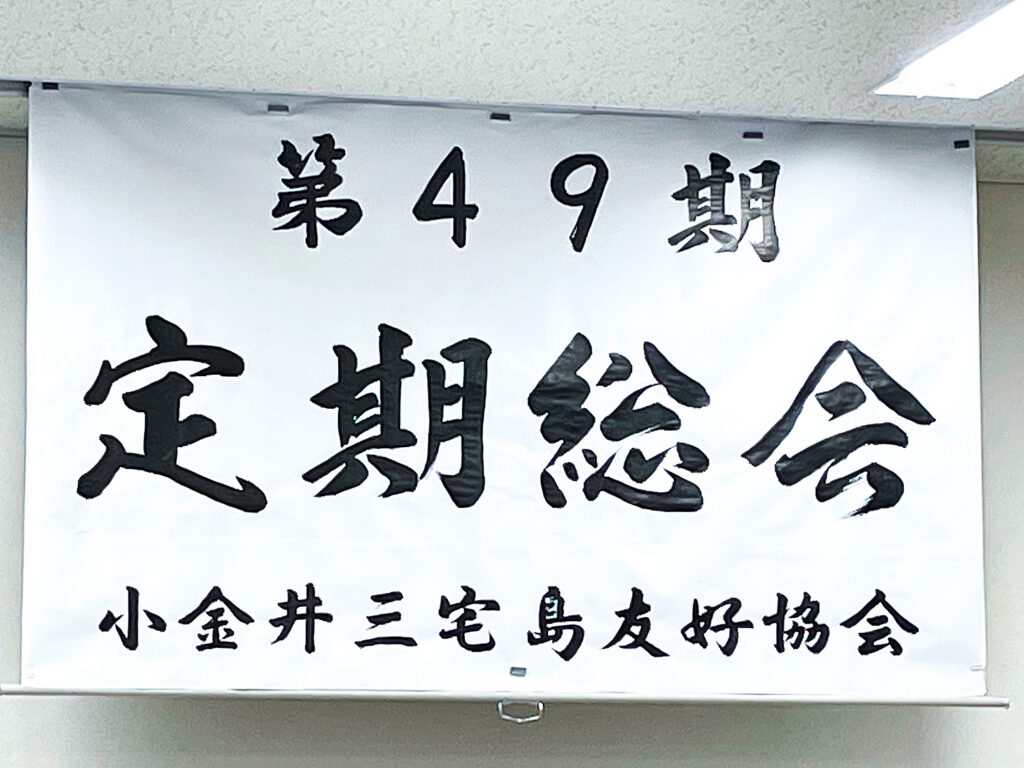 第４９期
定期総会
小金井三宅島友好協会